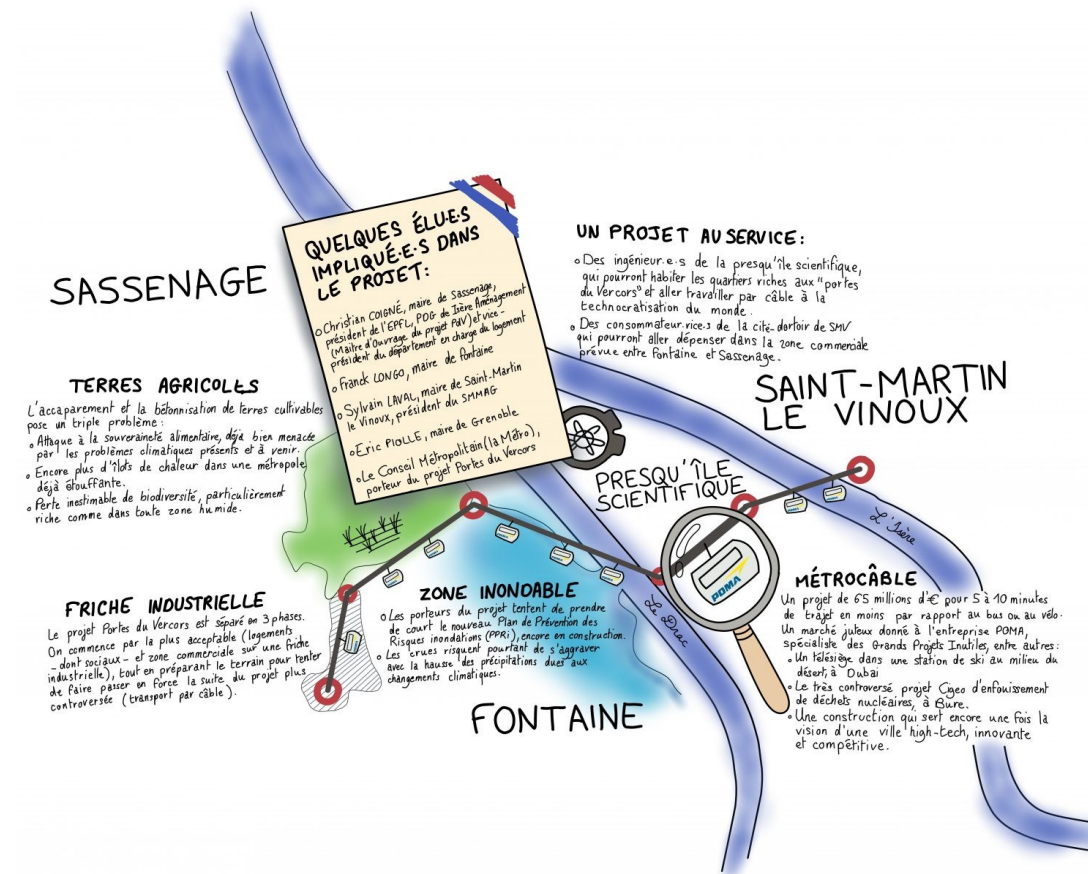 SASSENAGE
QUELQUES ÉLU·E·S
IMPLIQUÉ·E·S DANS
LE PROJET:
Christian COIGNÉ, maire de Sassenage,
président de l'EPFL, PDG de Isère Aménagement
(Maître d'Ouvrage du projet PdV) et vice-
président du département en charge du logement
Franck LONGO, maire de Fontaine
Sylvain LAVAL, maire de Saint-Martin
le Vinoux, président du SMMAG
Eric PIOLLE, maire de Grenoble
Le Conseil Métropolitain (la Métro),
porteur du projet Portes du Vercors
UN PROJET AU SERVICE:
Des ingénieur.e.s de la presqu'île scientifique,
qui pourront habiter les quartiers riches aux "portes
du Vercors" et aller travailler par câble à la
technocratisation du monde.
Des consommateur.rice.s de la cité-dortoir de SMV
qui pourront aller dépenser dans la zone commerciale
prévue entre Fontaine et Sassenage.
SAINT-MARTIN
LE VINOUX
TERRES AGRICOLES
L'accaparement et la bétonnisation de terres cultivables
pose un triple problème:
Attaque à la souveraineté alimentaire, déjà bien menacée
par les problèmes climatiques présents et à venir.
Encore plus d'îlots de chaleur dans une métropole
déjà étouffante.
Perte inestimable de biodiversité, particulièrement
riche comme dans toute zone humide.
PRESQU'ÎLE
SCIENTIFIQUE
L'Isère
POMA
FRICHE INDUSTRIELLE
Le projet Portes du Vercors est séparé en 3 phases.
On commence par la plus acceptable (logements
- dont sociaux - et zone commerciale sur une friche
industrielle), tout en préparant le terrain pour tenter
de faire passer en force la suite du projet plus
controversée (transport par câble).
ZONE INONDABLE
Les porteurs du projet tentent de prendre
de court le nouveau Plan de Prévention des
Risques inondations (PPRi), encore en construction.
Les crues risquent pourtant de s'aggraver
avec la hausse des précipitations dues aux
changements climatiques.
Le Drac
MÉTROCÂBLE
Un projet de 65 millions d'€ pour 5 à 10 minutes
de trajet en moins par rapport au bus ou au vélo.
Un marché juteux donné à l'entreprise POMA,
spécialiste des Grands Projets Inutiles, entre autres:
Un télésiège dans une station de ski au milieu du
désert, à Dubaï
Le très controversé projet Cigeo d'enfouissement
de déchets nucléaires, à Bure.
Une construction qui sert encore une fois la
vision d'une ville high-tech, innovante
et compétitive.
FONTAINE